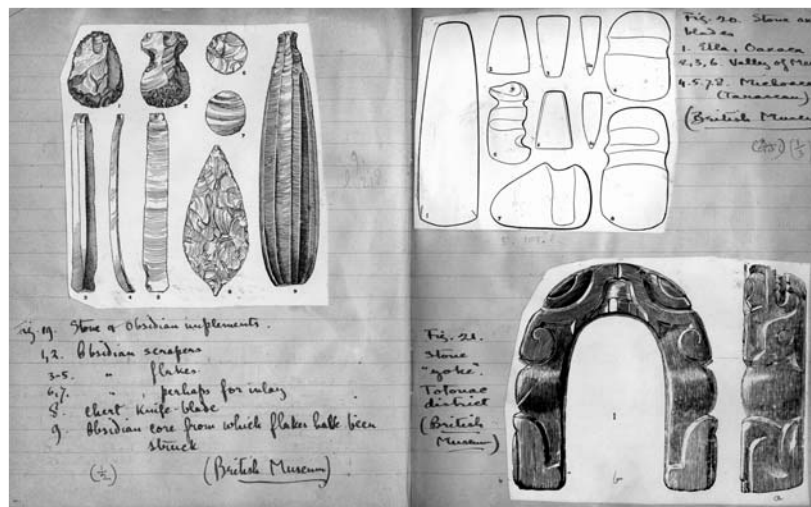 Fig. 19. Stone & Obsidian implements.
1,2. Obsidian scrapers
3-5. " flakes
6,7. " , perhaps for inlay
8. Chert Knife-blade
9. Obsidian core from which flakes have been
struck
(½)
(British Museum)
Fig. 20. Stone
blades
1. Etla, Oaxaca
2,3,6. Valley of
4.5.7.8.
(Tarascan)
(British
Fig. 21.
Stone
"yoke".
Totonac
district
(British
Museum)
1
b
a